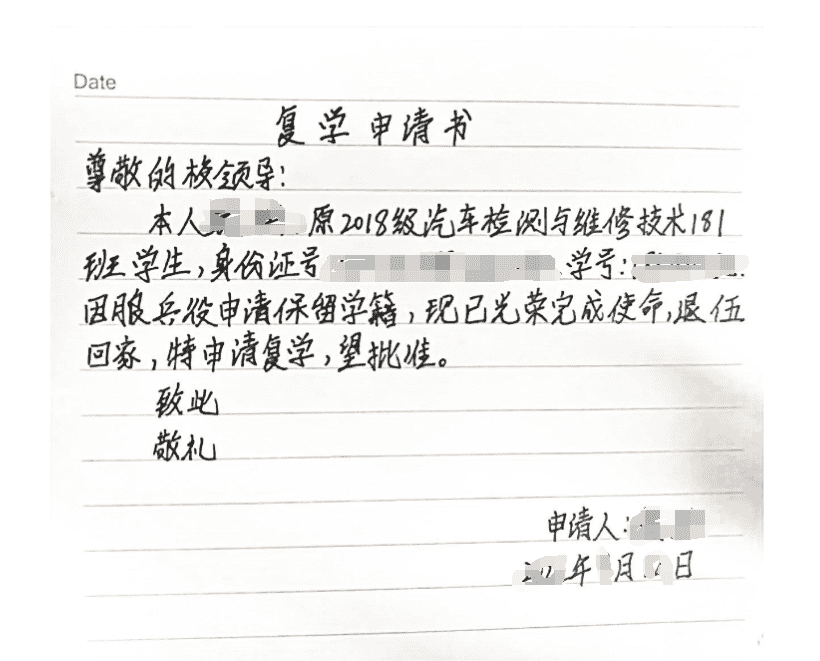 Date
复学申请书
尊敬的校领导:
本人 原2018级汽车检测与维修技术181
班学生,身份证号 学号:
因服兵役申请保留学籍,现已光荣完成使命,退伍
回家,特申请复学,望批准。
致此
敬礼
申请人:
年 月 日